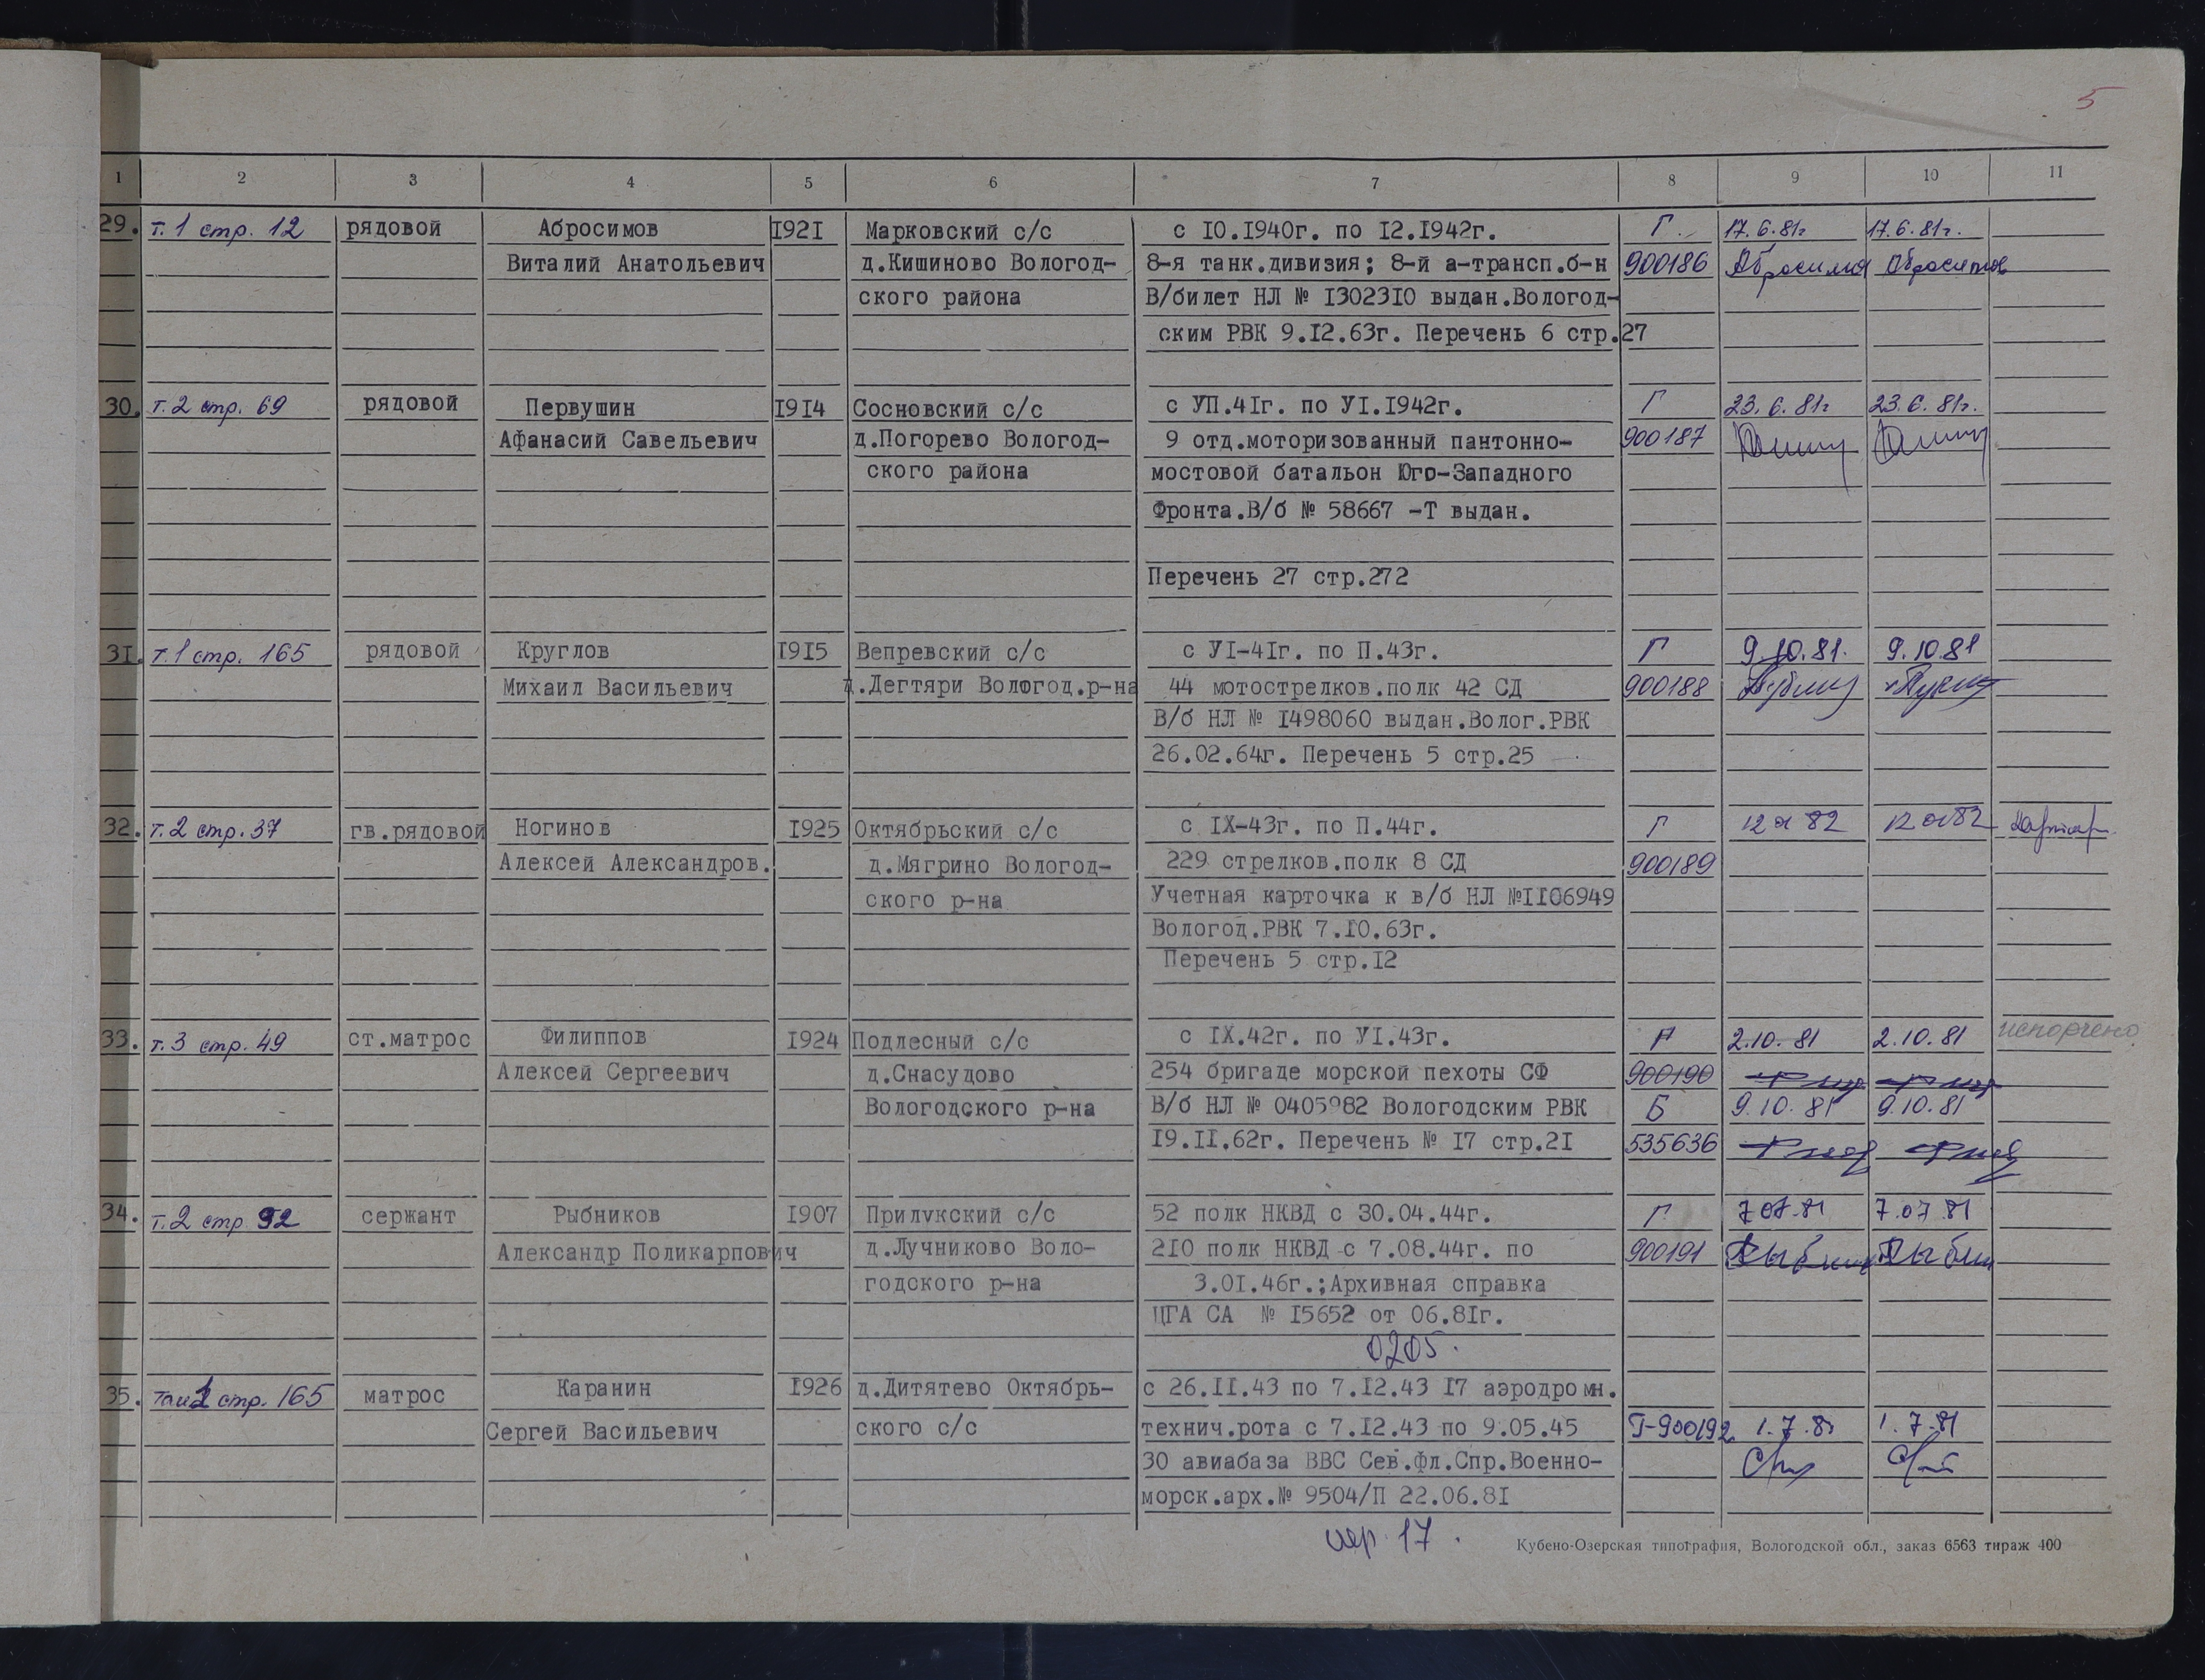 5
1 2 3 4 5 6 7 8 9 10 11
29. т.1 стр. 12 рядовой Абросимов 1921 Марковский с/с с 10.1940г. по 12.1942г. Г. 17.6.81г 17.6.81г.
Виталий Анатольевич д.Кишиново Вологод- 8-я танк.дивизия; 8-й а-трансп.б-н 900186 Абросимов Абросимов
ского района В/билет НЛ № 1302310 выдан.Вологод-
ским РВК 9.12.63г. Перечень 6 стр.27
30. т.2 стр. 69 рядовой Первушин 1914 Сосновский с/с с УП.41г. по УI.1942г. Г 23.6.81г 23.6.81г.
Афанасий Савельевич д.Погорево Вологод- 9 отд.моторизованный пантонно- 900187
ского района мостовой батальон Юго-Западного
Фронта.В/б № 58667 -Т выдан.
Перечень 27 стр.272
31. т.1 стр. 165 рядовой Круглов 1915 Вепревский с/с с УI-41г. по П.43г. Г 9.10.81. 9.10.81
Михаил Васильевич д.Дегтяри Вологод.р-на 44 мотострелков.полк 42 СД 900188
В/б НЛ № 1498060 выдан.Волог.РВК
26.02.64г. Перечень 5 стр.25
32. т.2 стр.37 гв.рядовой Ногинов 1925 Октябрьский с/с с IX-43г. по П.44г. Г 12 01 82 12 01 82
Алексей Александров. д.Мягрино Вологод- 229 стрелков.полк 8 СД 900189
ского р-на Учетная карточка к в/б НЛ №1106949
Вологод.РВК 7.10.63г.
Перечень 5 стр.12
33. т.3 стр. 49 ст.матрос Филиппов 1924 Подлесный с/с с IX.42г. по УI.43г. Г 2.10.81 2.10.81 испорчено
Алексей Сергеевич д.Снасудово 254 бригаде морской пехоты СФ 900190
Вологодского р-на В/б НЛ № 0405982 Вологодским РВК Б 9.10.81 9.10.81
19.11.62г. Перечень № 17 стр.21 535636
34. т.2 стр 92 сержант Рыбников 1907 Прилукский с/с 52 полк НКВД с 30.04.44г. Г 7.07.81 7.07.81
Александр Поликарпович д.Лучниково Воло- 210 полк НКВД с 7.08.44г. по 900191
годского р-на 3.01.46г.;Архивная справка
ЦГА СА № 15652 от 06.81г.
0205.
35. том 1 стр. 165 матрос Каранин 1926 д.Дитятево Октябрь- с 26.11.43 по 7.12.43 17 аэродромн.
Сергей Васильевич ского с/с технич.рота с 7.12.43 по 9.05.45 Г-900192 1.7.81 1.7.81
30 авиабаза ВВС Сев.фл.Спр.Военно-
морск.арх.№ 9504/П 22.06.81
пер 17.
Кубено-Озерская типография, Вологодской обл., заказ 6563 тираж 400